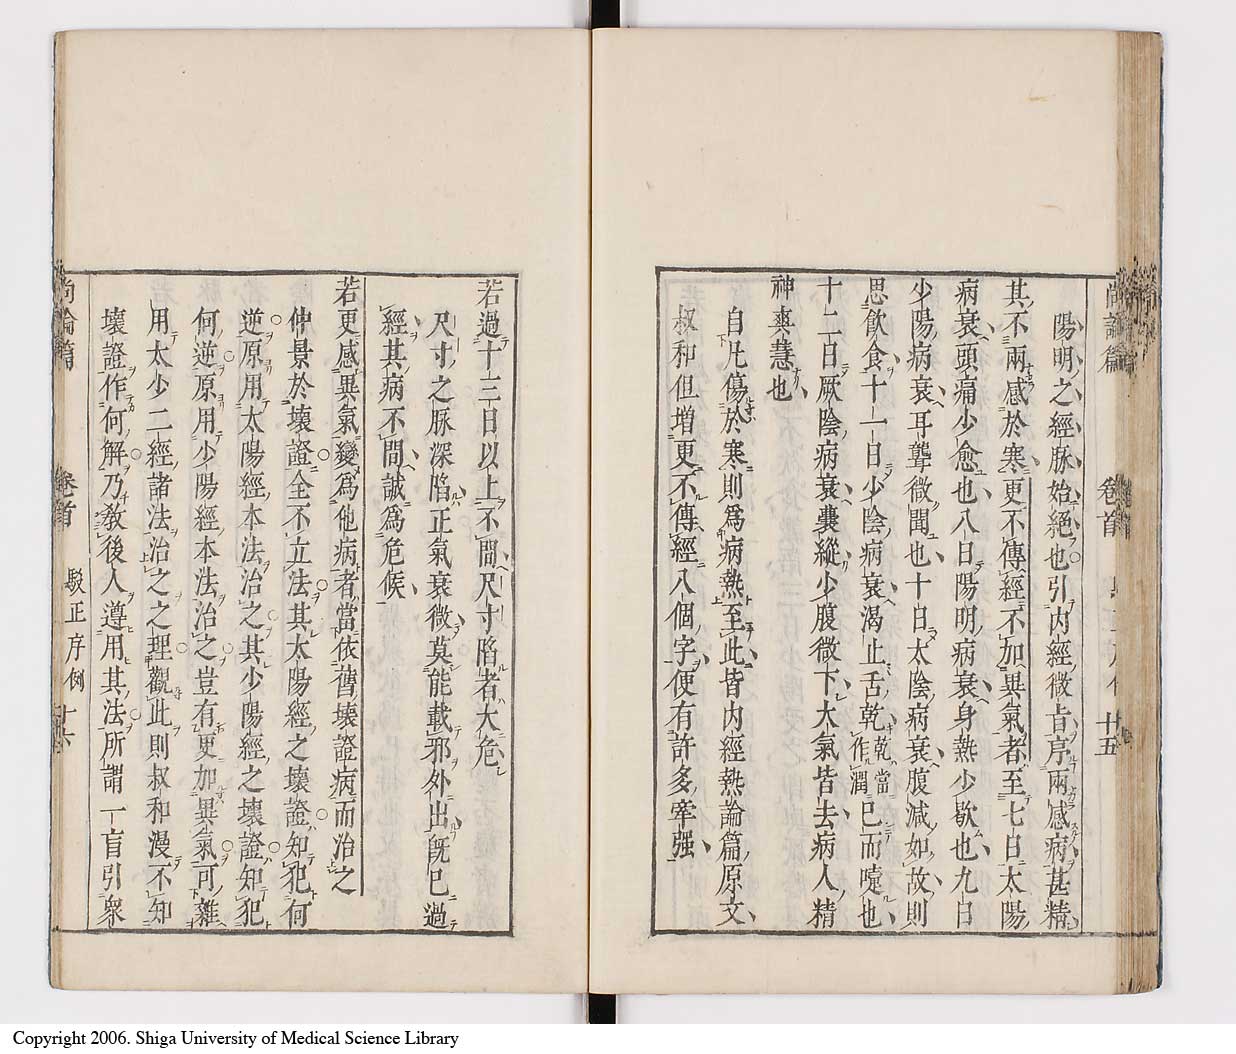 尚論篇 卷首 十五
陽明之經脉始絶也引内經微旨序兩感病甚精
其不兩感於寒更不傳經不加異氣者至七日太陽
病衰頭痛少愈也八日陽明病衰身熱少歇也九日
少陽病衰耳聾微聞也十日太陰病衰腹減如故則
思飲食十一日少陰病衰渴止舌乾乾當作潤已而嚏也
十二日厥陰病衰囊縱少腹微下大氣皆去病人精
神爽慧也
自凡傷於寒則爲病熱至此皆内經熱論篇原文
叔和但增更不傳經八個字便有許多牽强
若過十三日以上不間尺寸陷者大危
尺寸之脉深陷正氣衰微莫能載邪外出旣已過
經其病不間誠爲危候
若更感異氣變爲他病者當依舊壞證病而治之
仲景於壞證全不立法其太陽經之壞證知犯何
逆原用太陽經本法治之其少陽經之壞證知犯
何逆原用少陽經本法治之豈有更加異氣可雜
用太少二經諸法治之之理觀此則叔和漫不知
壞證作何解乃敎後人遵用其法所謂一盲引衆
尚論篇 卷首 駁正序例 十六
Copyright 2006. Shiga University of Medical Science Library